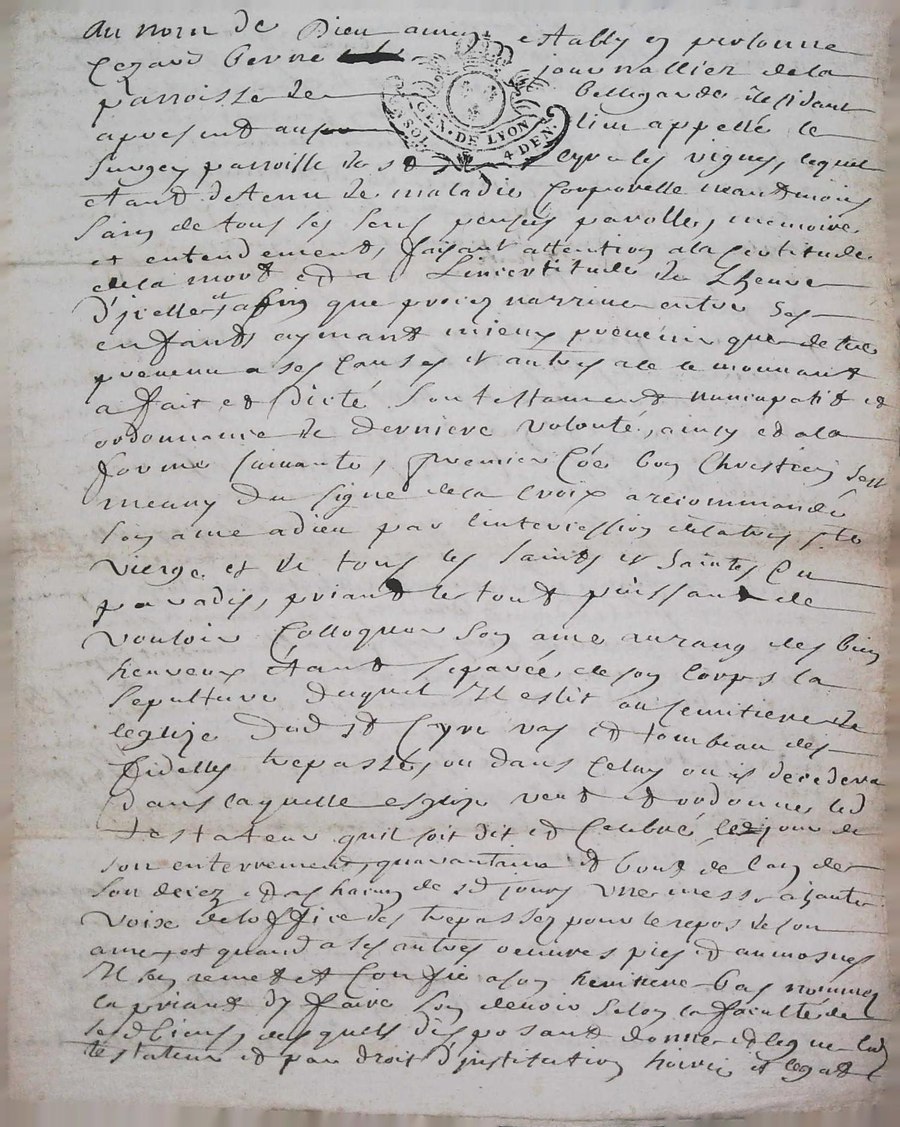 au nom de Dieu amen establÿ en personne
Cezard Berne journallier de la
parroisse de Bellegarde residant
apresent au lieu appellé le
Surgey parroisse de st Cyr les vignes, lequel
etant detenu de maladie Corporelle neantmoins
Sain de tous ses sens pensées parolles, memoire
et entendement, faisant attention a la Certitude
de la mort et a Lincertitude de Lheure
d'icelle et affin que procez narrive entre Ses
enfants aymant mieux prevenir que detre
prevenu a ses Causes et autres a le mouvant
a fait et Dicté Son testament nuncupatif et
ordonnance de derniere volonté, ainsy et a la
forme Suivante, premier Coe bon Chrestien Sest
meuny du Signe de la Croix a recommandé
Son ame a dieu par lintercession de la tres Ste
vierge et de tous les Saints et Saintes Du
paradis, priant le tout puissant de
vouloir Colloquer Son ame au rang des bien
heureux etant separée de son Corps la
Sepulture duquel Il eslit au Cemitiere de
leglize dud st Cyr vas et tombeau des
fidelles trepassés, ou dans Celuy ou il decedera
dans laquelle eglize veut et ordonne led
testateur quil soit dit et Celebré le jour de
son enterrement, quarantaine et bout de lan de
Son decez et a chacun desd jours une messe a haute
voise de loffice des trepassez pour le repos de son
ame, et quand a ses autres oeuvres pies et aumosnes
Il sen remet et Confie a son heritiere bas nommée
la priant dy faire Son devoir Selon la faculté de
sesd biens, desquels disposant donne et legue led
testateur et par droit d'institution hoirie et legat
GEN · DE LYON
SOL 4 DEN